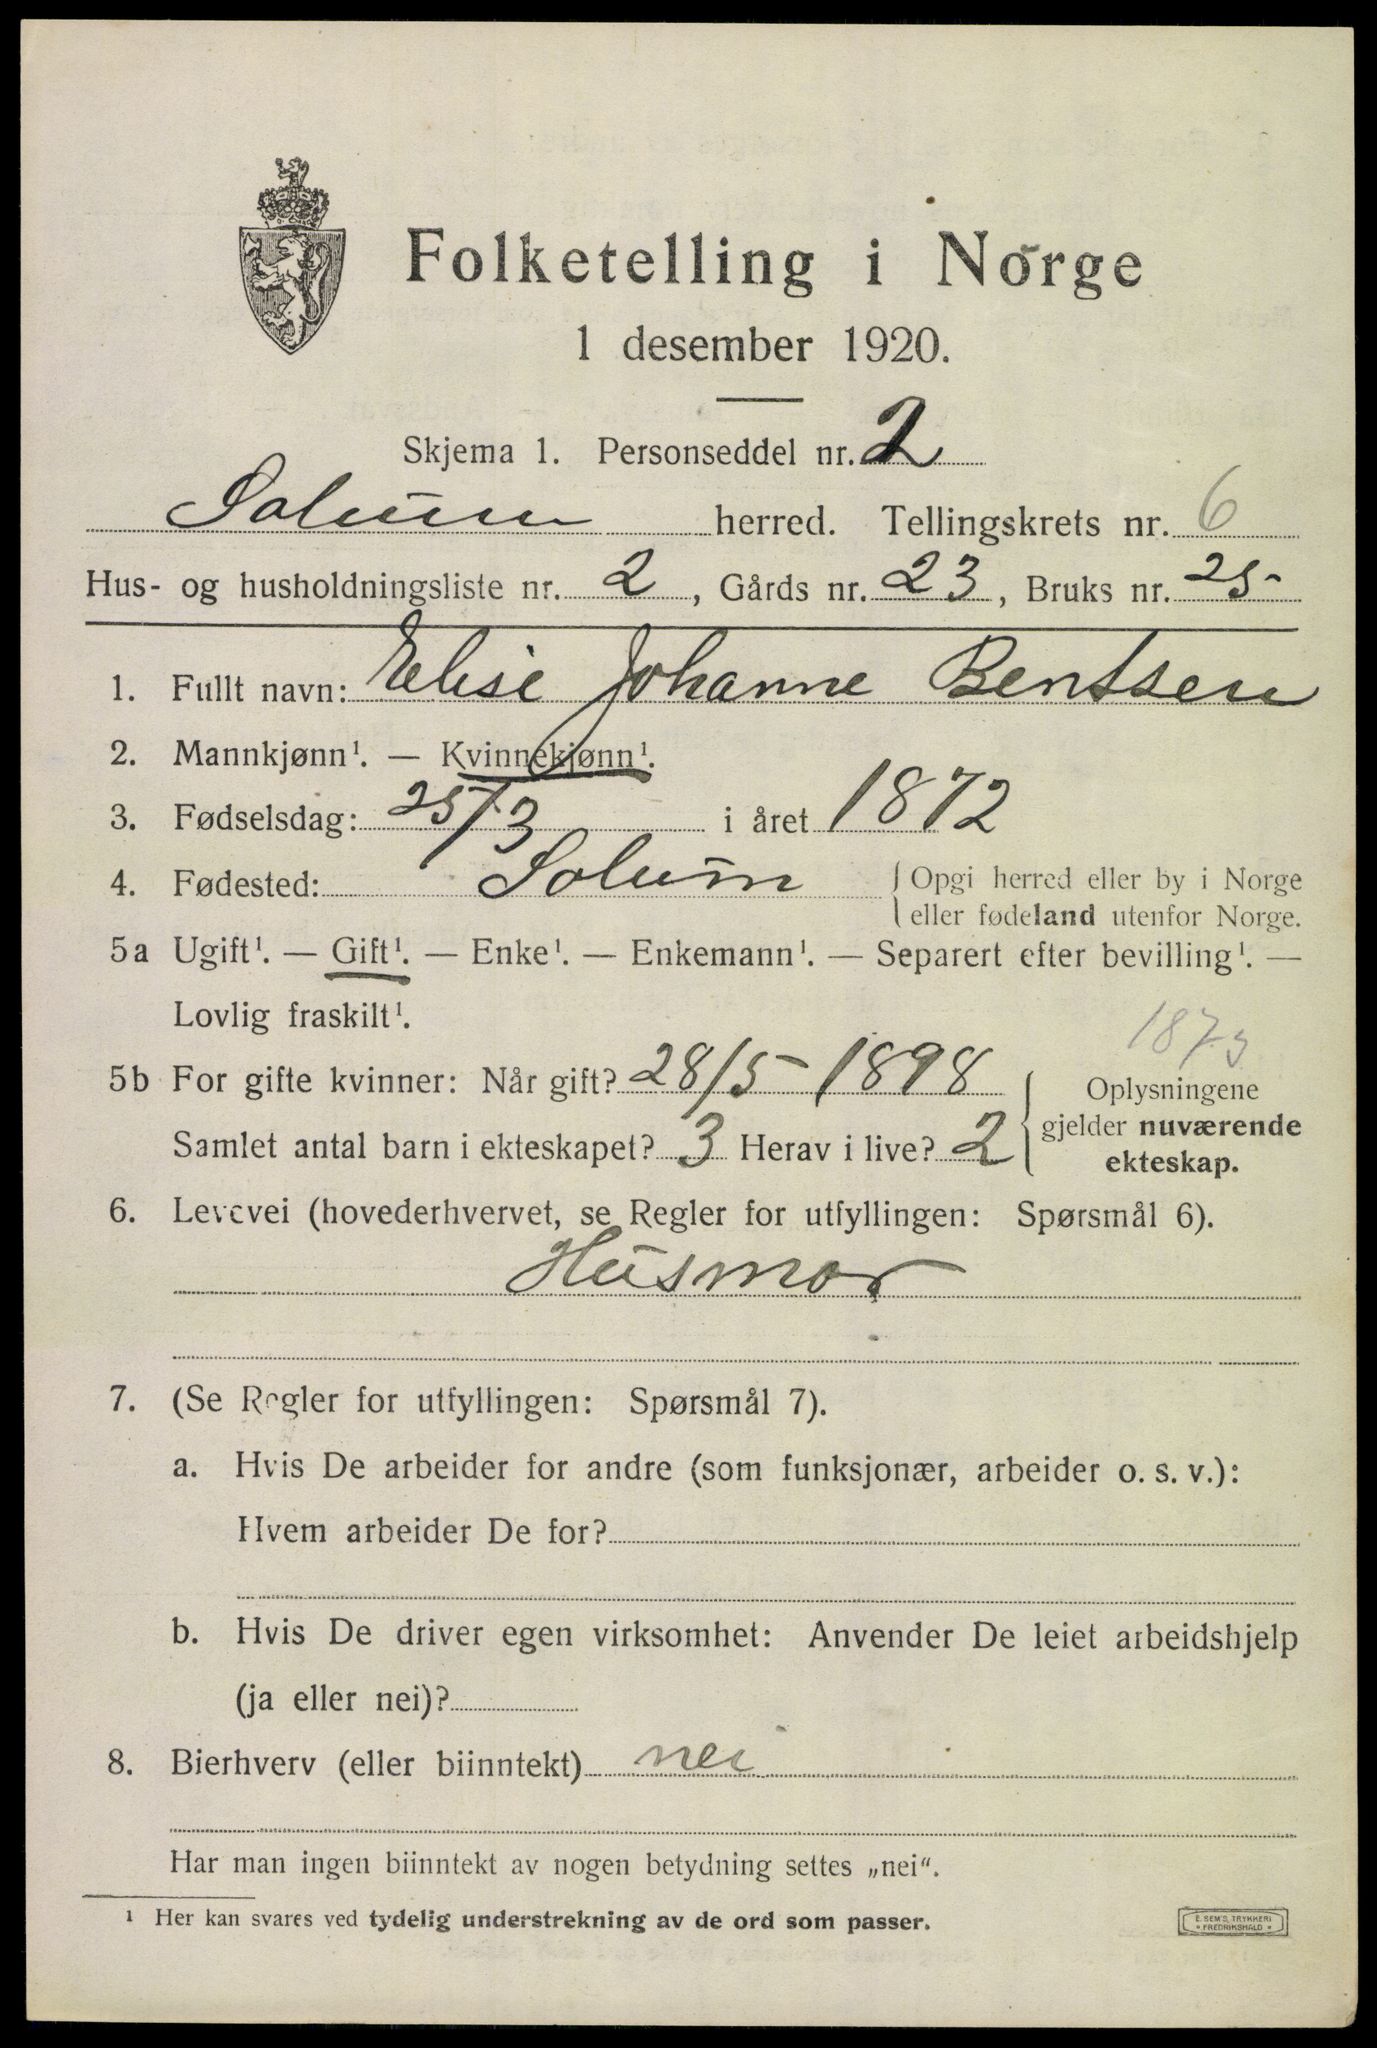 Folketelling i Norge
1 desember 1920.
Skjema 1. Personseddel nr. 2
Solum herred. Tellingskrets nr. 6
Hus- og husholdningsliste nr. 2, Gårds nr. 23, Bruks nr. 25
1. Fullt navn: Elise Johanne Bentsen
2. Mannkjønn¹. — Kvinnekjønn¹.
3. Fødselsdag: 25/3 i året 1872
4. Fødested: Solum { Opgi herred eller by i Norge
eller fødeland utenfor Norge.
5a Ugift¹. — Gift¹. — Enke¹. — Enkemann¹. — Separert efter bevilling¹. —
Lovlig fraskilt¹.
1873
5b For gifte kvinner: Når gift? 28/5 - 1898
Samlet antal barn i ekteskapet? 3 Herav i live? 2
Oplysningene
gjelder nuværende
ekteskap.
6. Levevei (hovederhvervet, se Regler for utfyllingen: Spørsmål 6).
Husmor
7. (Se Regler for utfyllingen: Spørsmål 7).
a. Hvis De arbeider for andre (som funksjonær, arbeider o. s. v.):
Hvem arbeider De for?
b. Hvis De driver egen virksomhet: Anvender De leiet arbeidshjelp
(ja eller nei)?
8. Bierhverv (eller biinntekt) nei
Har man ingen biinntekt av nogen betydning settes „nei“.
¹ Her kan svares ved tydelig understrekning av de ord som passer.
E. SEM'S, TRYKKERI
FREDRIKSHALD